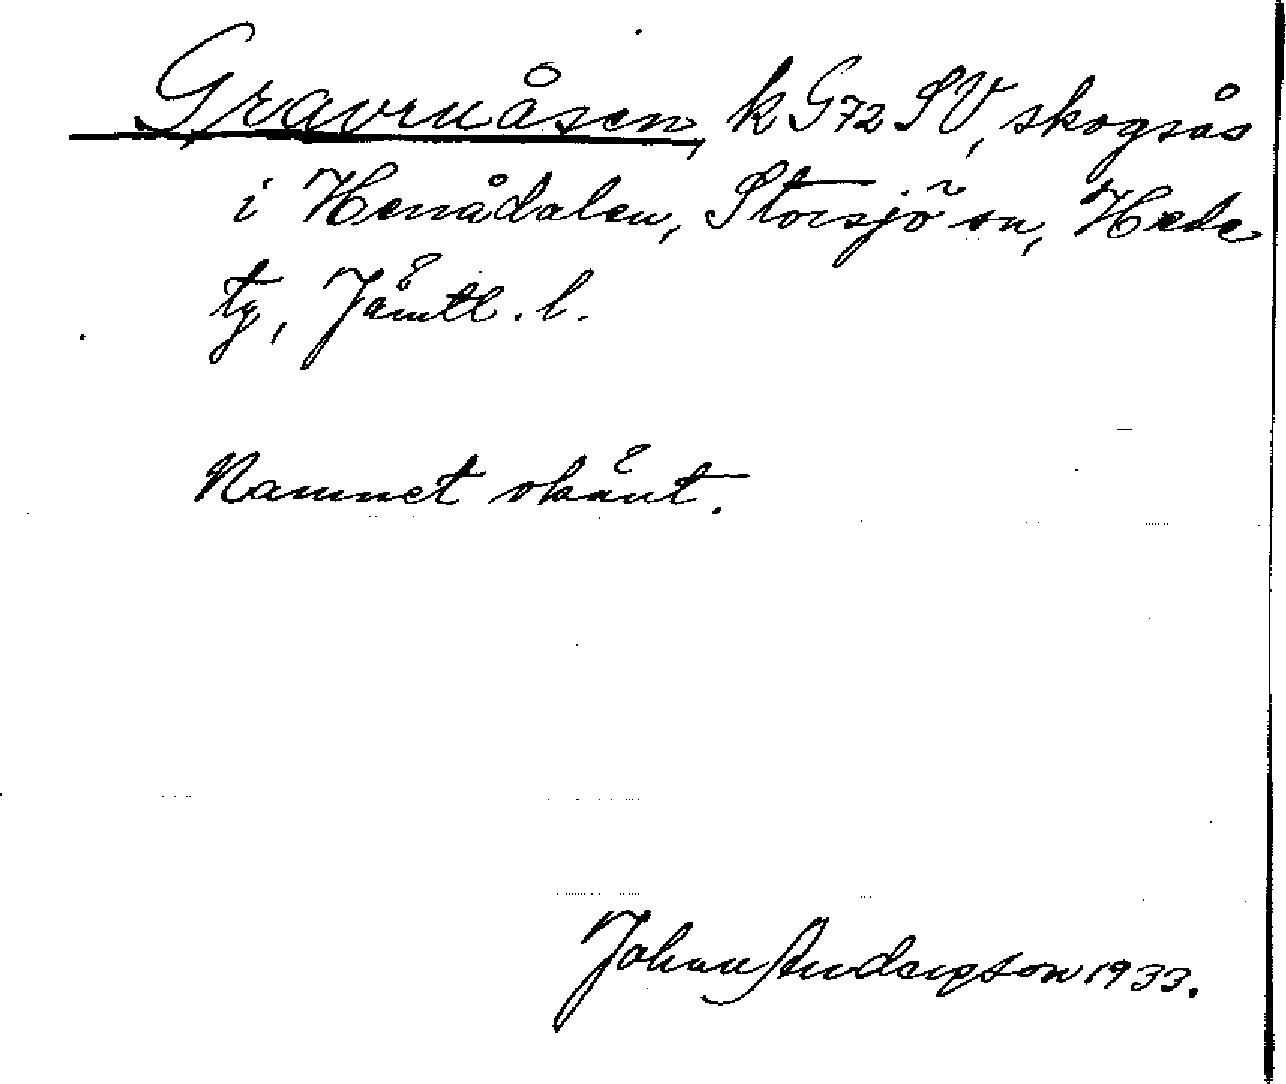 Gravruåsen, k G72 SV, skogsås
i Henådalen, Storsjö sn, Hede
tg, Jämtl. l.
Namnet okänt.
Johan Andersson 1933.